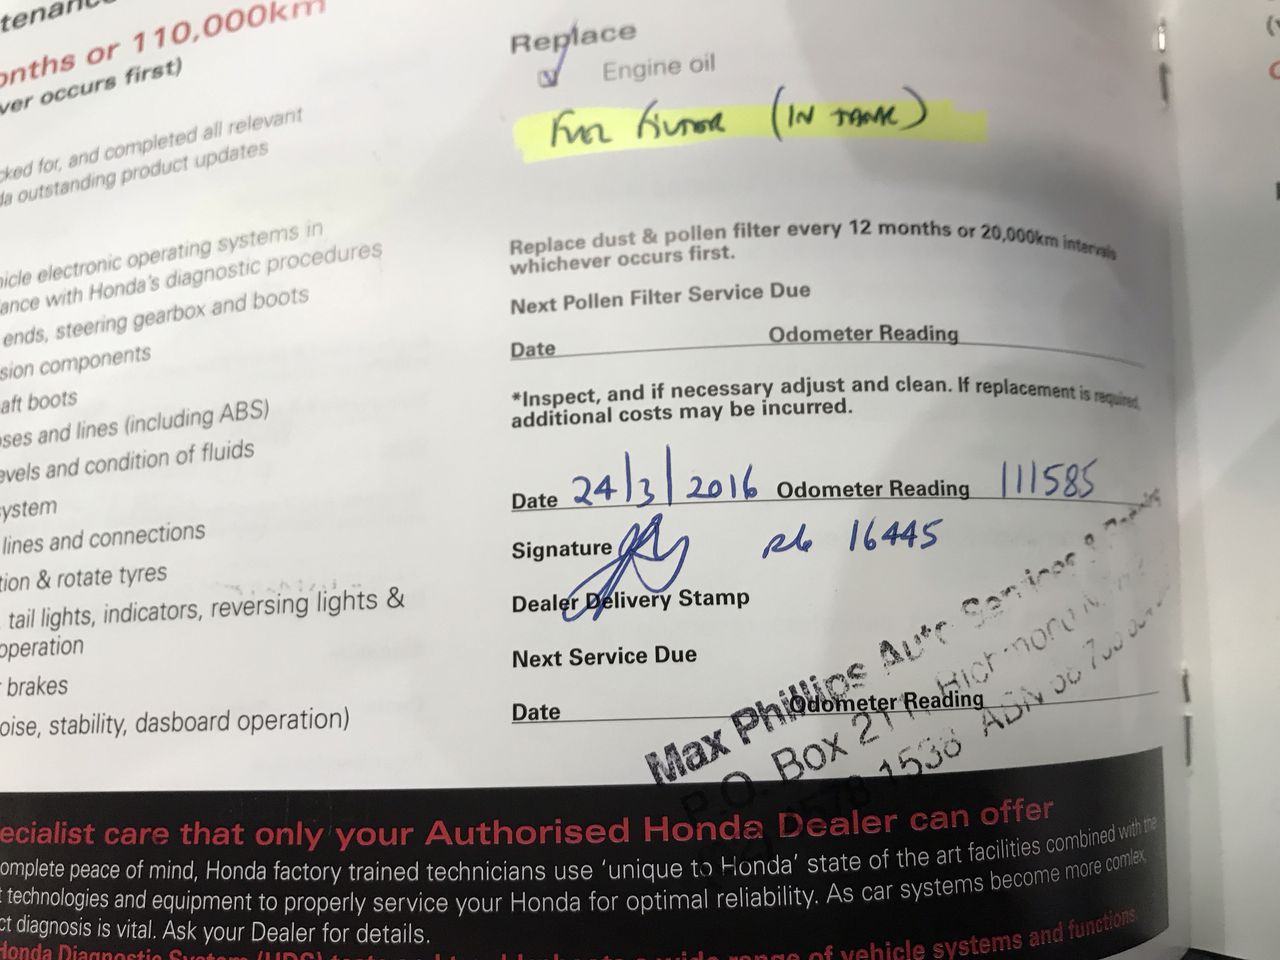 onths or 110,000km
ver occurs first)
cked for, and completed all relevant
da outstanding product updates
hicle electronic operating systems in
ance with Honda's diagnostic procedures
ends, steering gearbox and boots
sion components
aft boots
oses and lines (including ABS)
evels and condition of fluids
system
lines and connections
tion & rotate tyres
tail lights, indicators, reversing lights &
operation
brakes
oise, stability, dasboard operation)
Replace
Engine oil
FUEL FILTER (IN TANK)
Replace dust & pollen filter every 12 months or 20,000km intervals
whichever occurs first.
Next Pollen Filter Service Due
Date Odometer Reading
*Inspect, and if necessary adjust and clean. If replacement is required,
additional costs may be incurred.
Date 24/3/2016 Odometer Reading 111585
Signature 16445
Dealer Delivery Stamp
Next Service Due
Date Odometer Reading
Max Phillips Auto Services &
P.O. Box 211 Richmond
4578 1538 ABN
ecialist care that only your Authorised Honda Dealer can offer
omplete peace of mind, Honda factory trained technicians use 'unique to Honda' state of the art facilities combined with the
technologies and equipment to properly service your Honda for optimal reliability. As car systems become more comlex,
ct diagnosis is vital. Ask your Dealer for details.
Honda Diagnostic System (HDS) of vehicle systems and functions.